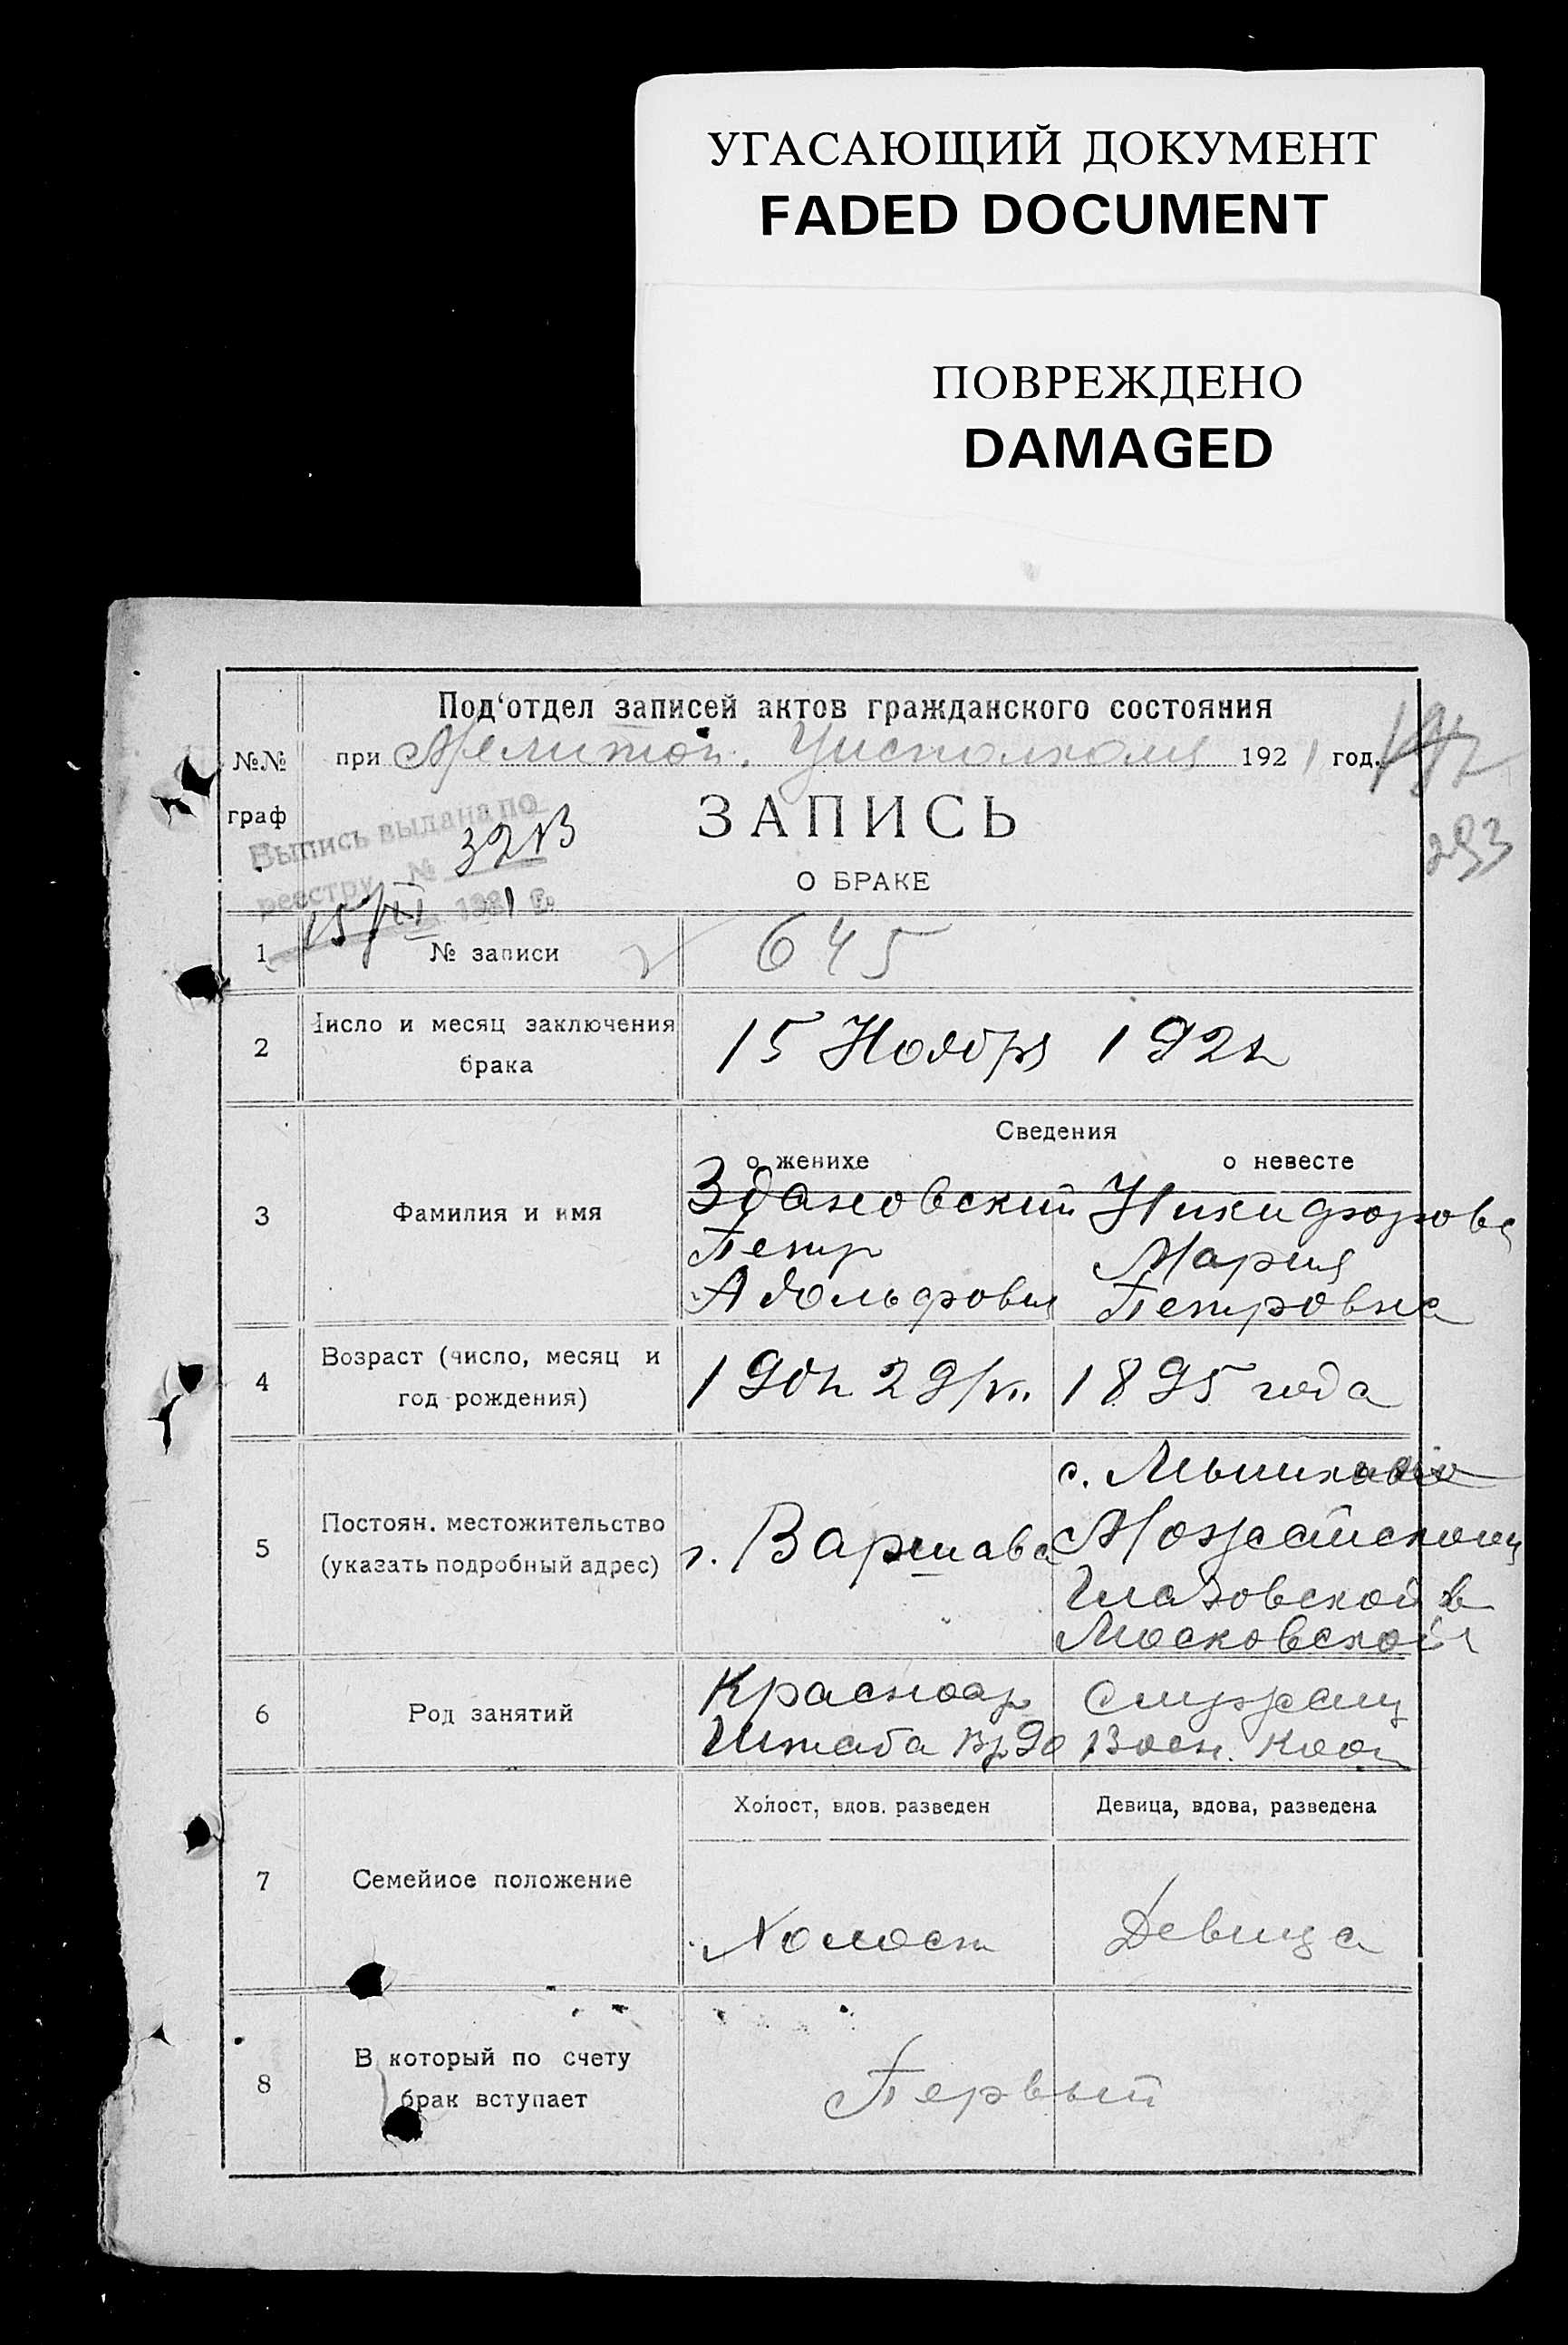 УГАСАЮЩИЙ ДОКУМЕНТ
FADED DOCUMENT
ПОВРЕЖДЕНО
DAMAGED
Под‘отдел записей актов гражданского состояния
№№ граф
при Мелитоп. Уисполкома 1921 год.
192
293
ЗАПИСЬ
О БРАКЕ
Выпись выдана по
реестру № 3213
15/XI 1921 г.
1 № записи 645
2 Число и месяц заключения
брака
15 Ноября 192
Сведения
о женихе
о невесте
3 Фамилия и имя
Здановский
Петр
Адольфович
Никифорова
Мария
Петровна
4 Возраст (число, месяц и
год рождения)
29/VII
1895 года
5 Постоян. местожительство
(указать подробный адрес)
г. Варшава
с.
Можайского у
в
Московской г
6 Род занятий
Красноар
Штаба
Служащ
Воен.
7 Семейное положение
Холост, вдов. разведен
Девица, вдова, разведена
Холост
Девица
8 В который по счету
брак вступает
Первый